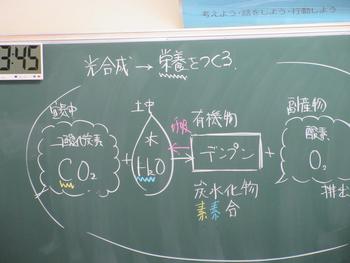 考えよう・話をしよう・行動しよう
3:45
光合成→栄養をつくる
空気中
二酸化炭素
CO₂
+
土中
水
H₂O
呼吸
有機物
デンプン
炭水化物
素素合
+
副産物
酸素
O₂
排出